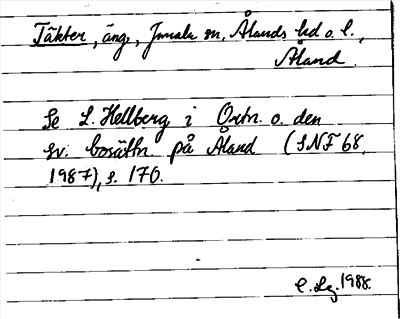 Täkter, äng, Jomala sn, Ålands hd o. l.,
Åland.
Se L. Hellberg i Ortn. o. den
sv. bosättn. på Åland (SNF 68,
1987), s. 170.
1988.